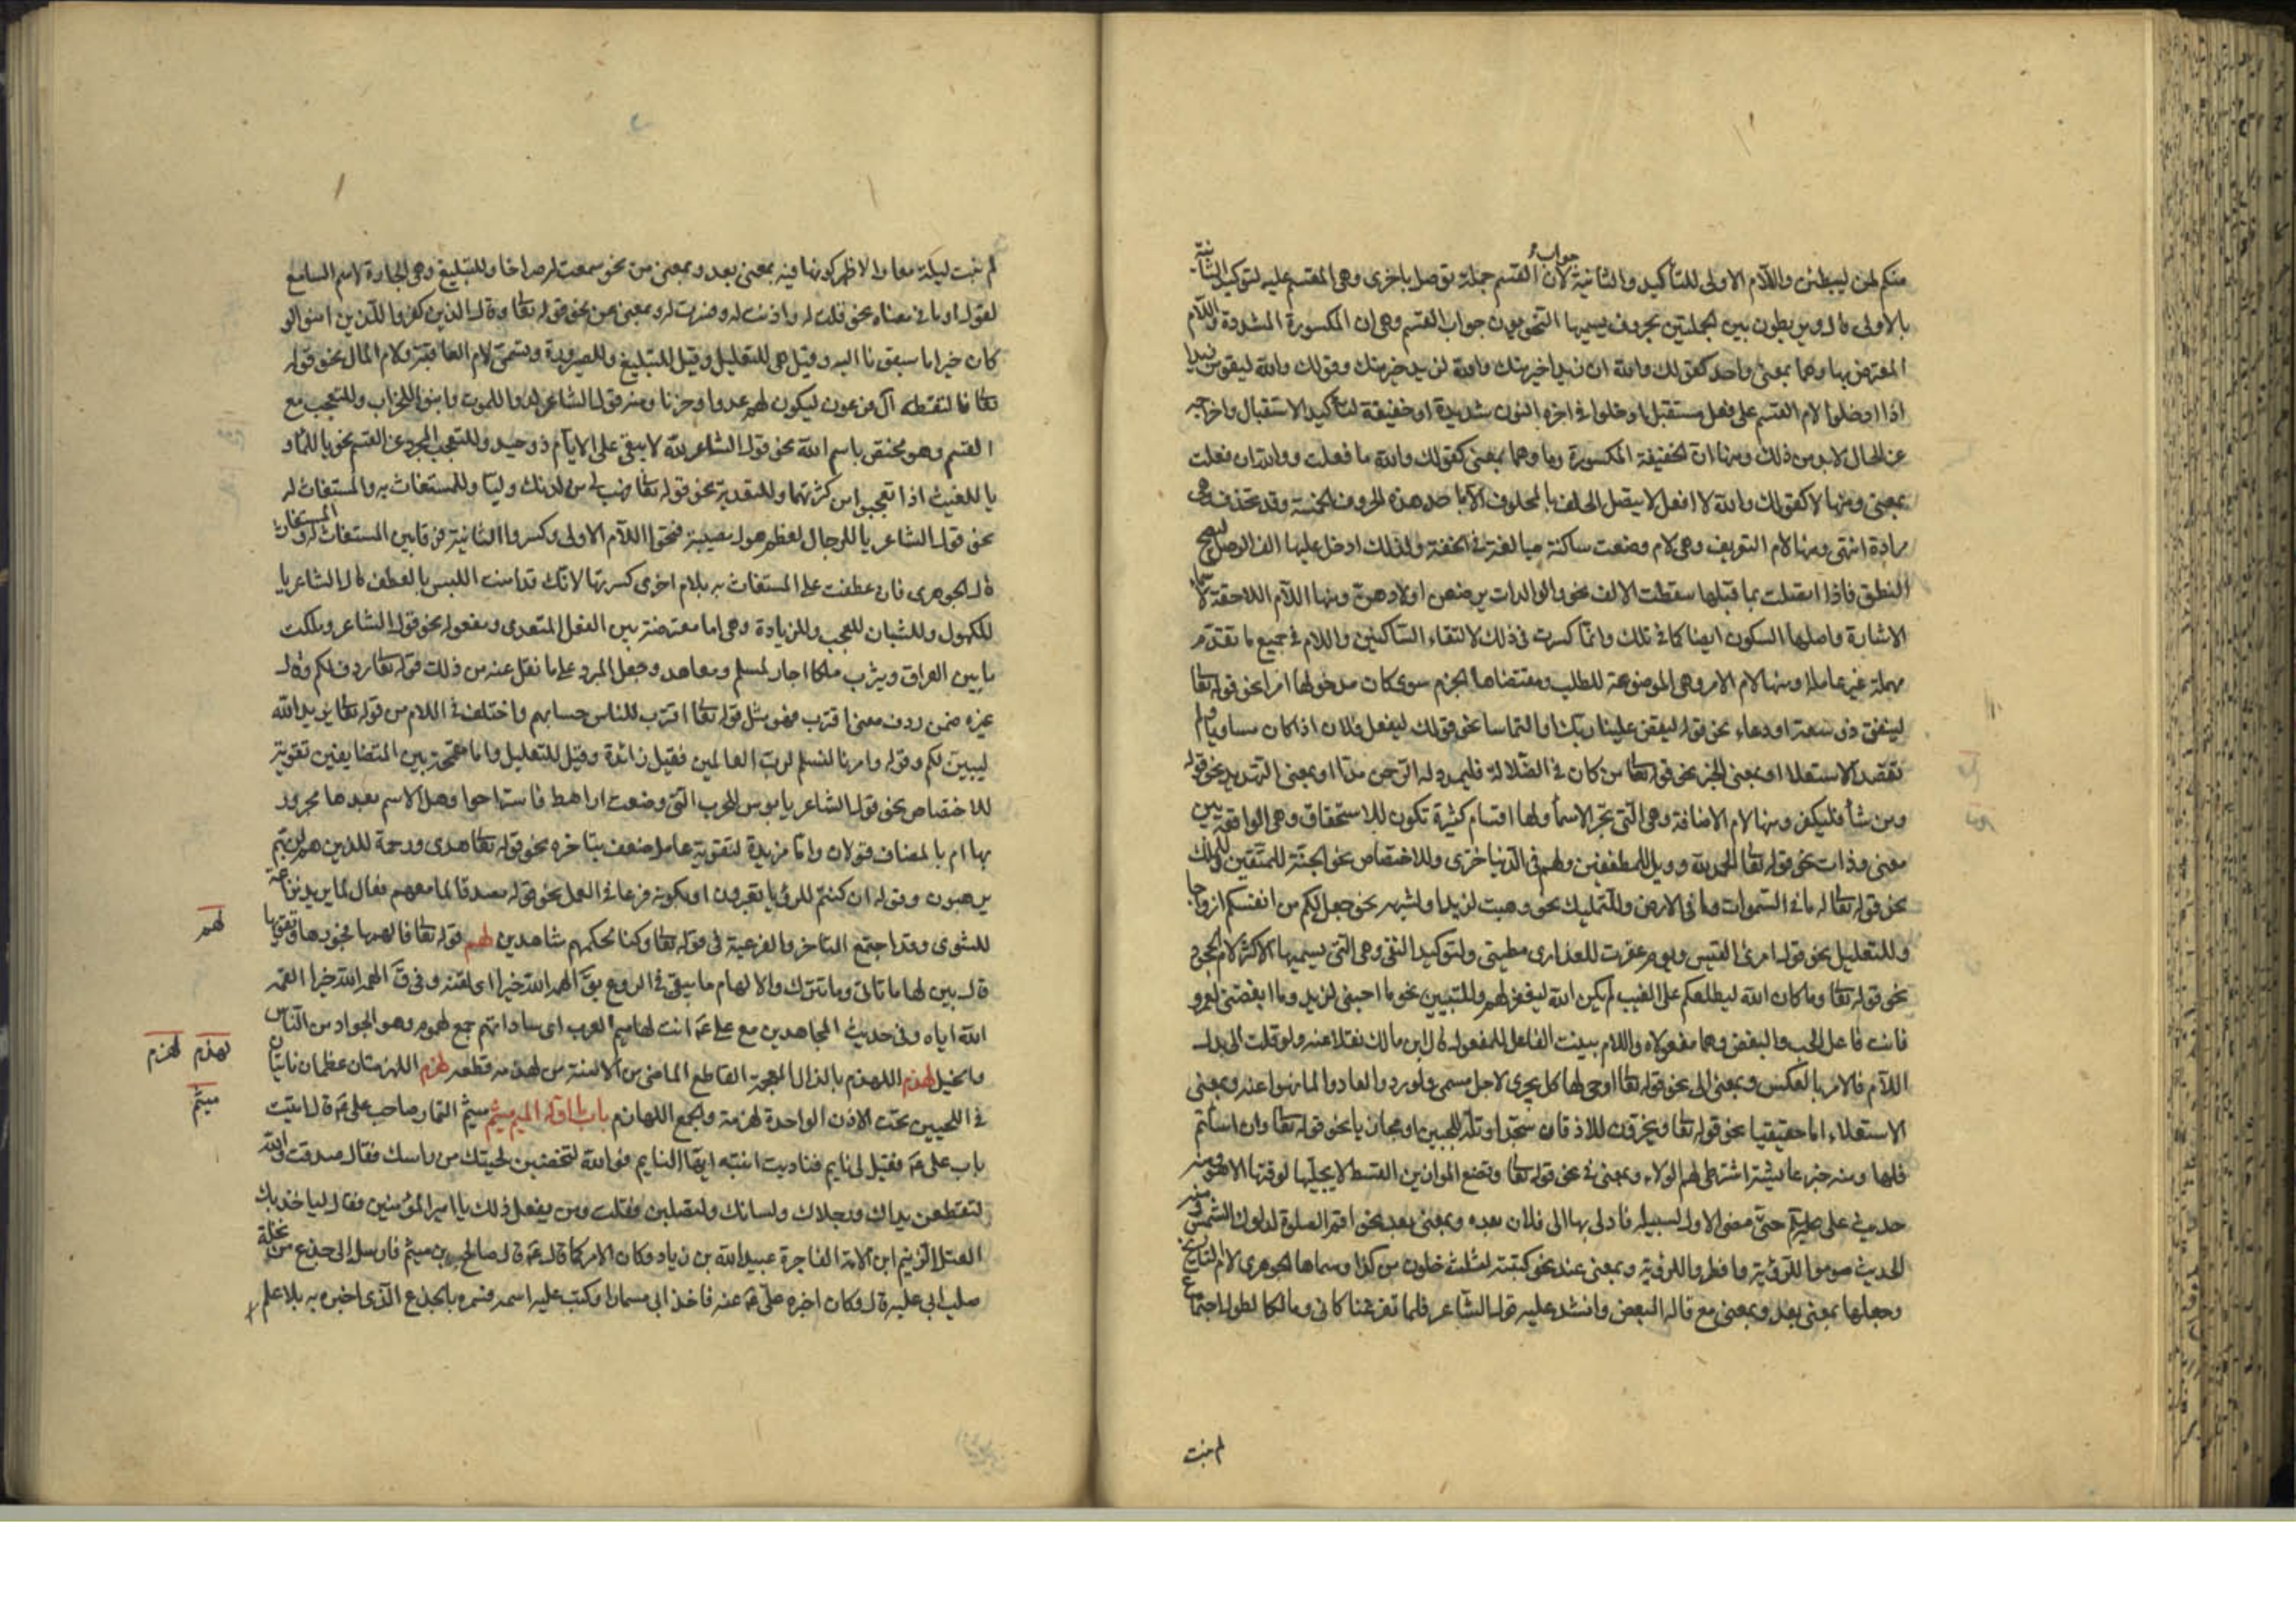 منكم لمن ليبطئن واللام الاولى للتأكيد والثانية جواب لان القسم جملة توصل باخرى وهى المقسم عليه لتوكيد الثانية
بالاولى قال ويربطون بين الجملتين بحروف يسميها النحويون جواب القسم وهى ان المكسورة المشددة واللام
المعترض بها وهما بمعنى واحد كقولك والله ان زيدا خير منك والله لزيد خير منك وقولك والله ليقومن زيد
اذا ادخلوا لام القسم على فعل مستقبل ادخلوا فى اخره النون شديدة او خفيفة لتأكيد الاستقبال واخراجه
عن الحال لابد من ذلك ومنها ان الخفيفة المكسورة وما وهما بمعنى كقولك والله ما فعلت ووالله ان فعلت
بمعنى ومنها لا كقولك والله لا افعل لا يتصل الحلف بالمحلوف الا باحد هذه الحروف الخمسة وقد تحذف وهى
مرادة انتهى ومنها لام التعريف وهى لام وضعت ساكنة مبالغة فى الخفة ولذلك ادخل عليها الف الوصل ليصح
النطق فاذا اتصلت بما قبلها سقطت الالف نحو والوالدات يرضعن اولادهن ومنها اللام اللاحقة لاسماء
الاشارة واصلها السكون ايضا كما فى تلك وانما كسرت فى ذلك لالتقاء الساكنين واللام فى جميع ما تقدم
مهملة غير عاملة ومنها لام الامر وهى الموضوعة للطلب ومقتضاها الجزم سوى كان مدخولها امرا نحو قوله تعالى
لينفق ذو سعة او دعاء نحو قوله ليقض علينا ربك او التماسا نحو قولك ليفعل فلان اذا كان مساويا ولم
تقصد الاستعلا او بمعنى الخبر نحو قوله تعالى من كان فى الضلالة فليمدد له الرحمن مدا او بمعنى التهديد نحو قوله
ومن شاء فليكفر ومنها لام الاضافة وهى التى تجر الاسماء ولها اقسام كثيرة تكون للاستحقاق وهى الواقعة بين
معنى وذات نحو قوله تعالى الحمد لله وويل للمطففين ولهم فى الدنيا خزى وللاختصاص نحو الجنة للمتقين وللملك
نحو قوله تعالى له ما فى السموات وما فى الارض وللتمليك نحو وهبت لزيد ولشبهه نحو جعل لكم من انفسكم ازواجا
وللتعليل نحو قول امرئ القيس ويوم عقرت للعذارى مطيتى ولتوكيد النفى وهى التى يسميها الاكثر لام الجحود
نحو قوله تعالى وما كان الله ليطلعكم على الغيب لم يكن الله ليغفر لهم وللتبيين نحو ما احبنى لزيد وما ابغضنى لعمرو
فانت فاعل الحب والبغض وهما مفعولاه واللام بينت الفاعل للمفعول قال ابن مالك نقلا عنه ولو قلت الى بدل
اللام فالامر بالعكس وبمعنى الى نحو قوله تعالى اوحى لها كل يجرى لاجل مسمى ولو ردوا لعادوا لما نهوا عنه وبمعنى
الاستعلاء اما حقيقيا نحو قوله تعالى ويخرون للاذقان سجدا وتله للجبين او مجازيا نحو قوله تعالى وان اسأتم
فلها ومنه خبر عايشة اشترطى لهم الولاء وبمعنى فى نحو قوله تعالى ونضع الموازين القسط لا يجليها لوقتها الا هو ومنه
حديث على عليه السلام حتى مضى الاول لسبيله فادلى بها الى فلان بعده وبمعنى بعد نحو اقم الصلوة لدلوك الشمس ومنه
الحديث صوموا للرؤية وافطروا للرؤية وبمعنى عند نحو كتبته لثلث خلون من كذا وسماها الجوهرى لام التاريخ
وجعلها بمعنى بعد وبمعنى مع قاله البعض وانشد عليه قول الشاعر فلما تفرقنا كانى ومالكا لطول اجتماع
لم نبت
لم نبت ليلة معا والاظهر كونها فيه بمعنى بعد وبمعنى من نحو سمعت له صراخا وللتبليغ وهى الجارة لاسم السامع
لقول او ما فى معناه نحو قلت له واذنت له وفسرت له وبمعنى عن نحو قوله تعالى وقال الذين كفروا للذين امنوا لو
كان خيرا ما سبقونا اليه وقيل هى للتعليل وقيل للتبليغ وللصيرورة وتسمى لام العاقبة ولام المال نحو قوله
تعالى فالتقطه آل فرعون ليكون لهم عدوا وحزنا ومنه قول الشاعر لدوا للموت وابنوا للخراب وللتعجب مع
القسم وهو مختص باسم الله نحو قول الشاعر لله لا يبقى على الايام ذو حيد وللتعجب المجرد عن القسم نحو يا للماء و
يا للغيث اذا تعجبوا من كثرتهما وللتعدية نحو قوله تعالى فهب لى من لدنك وليا وللمستغاث به والمستغاث له
نحو قول الشاعر يا للرجال لعظم هول مصيبة فتحوا اللام الاولى وكسروا الثانية فرقا بين المستغاث له والمستغاث به
قال الجوهرى فان عطفت على المستغاث به بلام اخرى كسرتها لانك قد امنت اللبس بالعطف قال الشاعر يا
للكهول وللشبان للعجب وللزيادة وهى اما معترضة بين الفعل المتعدى ومفعوله نحو قول الشاعر وملكت
ما بين العراق ويثرب ملكا اجار لمسلم ومعاهد وجعل المبرد على ما نقل عنه من ذلك قوله تعالى ردف لكم وقال
غيره ضمن ردف معنى اقترب فهو مثل قوله تعالى اقترب للناس حسابهم واختلف فى اللام من قوله تعالى يريد الله
ليبين لكم وقوله وامرنا لنسلم لرب العالمين فقيل زائدة وقيل للتعليل واما مقحمة بين المتضايفين تقوية
للاختصاص نحو قول الشاعر يا بوس للحرب التى وضعت اراهط فاستراحوا وهل الاسم بعدها مجرور
بها ام بالمضاف قولان واما مزيدة لتقوية عامل ضعف بتاخره نحو قوله تعالى هدى ورحمة للذين هم لربهم
يرهبون وقوله ان كنتم للرؤيا تعبرون او بكونه فرعا فى العمل نحو قوله مصدقا لما معهم فعال لما يريد نزاعة
للشوى وقد اجتمع التاخر والفرعية فى قوله تعالى وكنا لحكمهم شاهدين لهم قوله تعالى فالهمها فجورها وتقويها
قال بين لها ما تاتى وما تترك والالهام ما يلقى فى الروع يق الهمه الله خيرا اى لقنه وفى ق الهمه الله خيرا القمه
الله اياه وفى حديث المجاهدين مع على ع انت لهاميم العرب اى ساداتهم جمع لهموم وهو الجواد من الناس
والخيل لهذم اللهذم بالذال المعجمة القاطع الماضى من الالسنة من لهذمه قطعه لهزم اللهزمتان عظمان ناتيان
فى اللحيين تحت الاذن الواحدة لهزمة والجمع اللهازم باب ما اوله الميم ميثم ميثم التمار صاحب على ع قال اتيت
باب على ع فقيل لى نايم فناديت انتبه ايها النايم فوالله لتخضبن لحيتك من راسك فقال صدقت والله
لتقطعن يداك ورجلاك ولسانك ولتصلبن فقلت ومن يفعل ذلك يا امير المؤمنين فقال لياخذنك
العتل الزنيم ابن الامة الفاجرة عبيد الله بن زياد وكان الامر كما قال ع قال صالح بن ميثم فارسل الى جذع من نخلة
صلب ابى عليه قال وكان اخبره على ع عنه فاخذ ابى مسمارا وكتب عليه اسمه وسمره بالجذع الذى اخبره به بلا علم
لهم
لهذم لهزم
ميثم